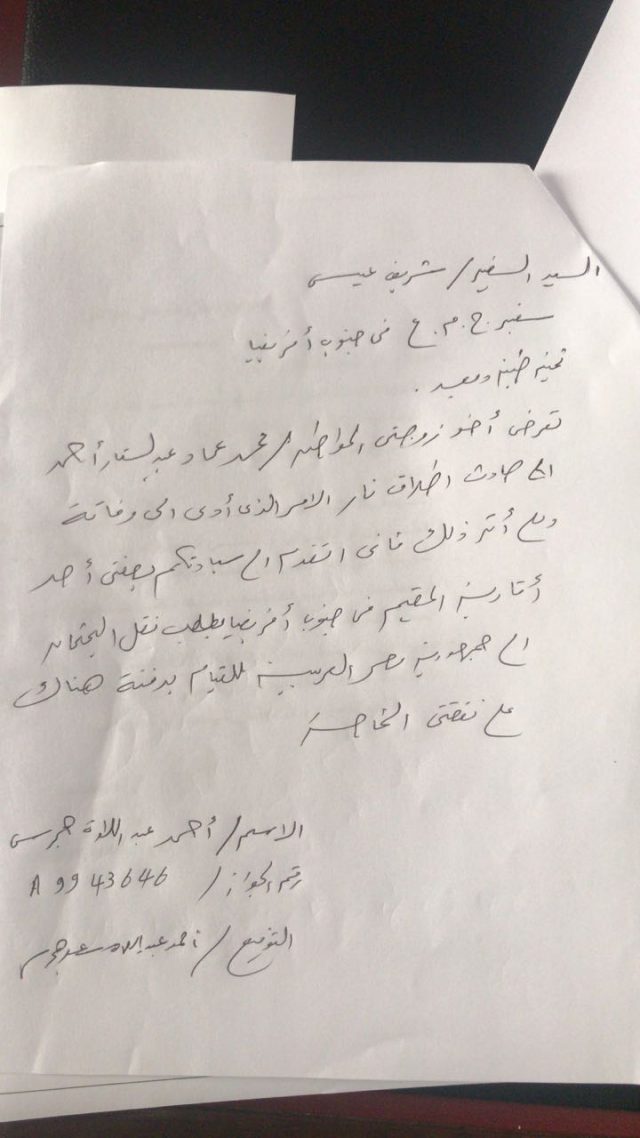 السيد السفير / شريف عيسى
سفير ج.م.ع فى جنوب أفريقيا
تحية طيبة وبعد .
تعرض أخو زوجتى المواطن / محمد عماد عبدالستار أحمد
الى حادث اطلاق نار الامر الذى أدى الى وفاتة
وعلى أثر ذلك فانى اتقدم الى سيادتكم بصفتى أحد
أقاربة المقيم فى جنوب أفريقيا بطلب نقل الجثمان
الى جمهورية مصر العربية للقيام بدفنة هناك
على نفقتى الخاصة
الاسم / أحمد عبد اللاة
رقم الجواز / A 9943646
التوقيع / احمد عبد اللاة